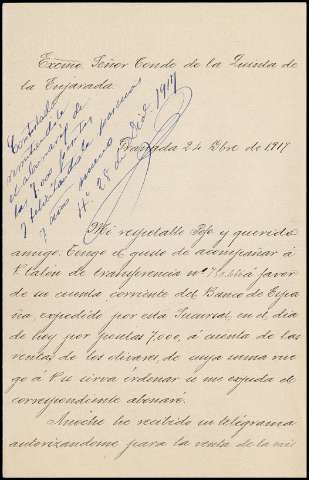 Excmo Señor Conde de la Quinta de
la Enjarada.
Contestado
remitiendole
el abonaré de
las 7.000 pesetas
y felicitandole pascuas
y año nuevo
28 de Dic 1917
Granada 24 Dbre de 1917
Mi respetable Jefe y querido
amigo: Tengo el gusto de acompañar á
V. talon de transferencia nº á favor
de su cuenta corriente del Banco de Espa
ña, expedido por esta Sucursal, en el dia
de hoy por pesetas 7,000, á cuenta de las
rentas de los olivares, de cuya suma rue
go á V. se sirva órdenar se me expida el
correspondiente abonaré.
Anoche he recibido su telegrama
autorizandome para la venta de la mil